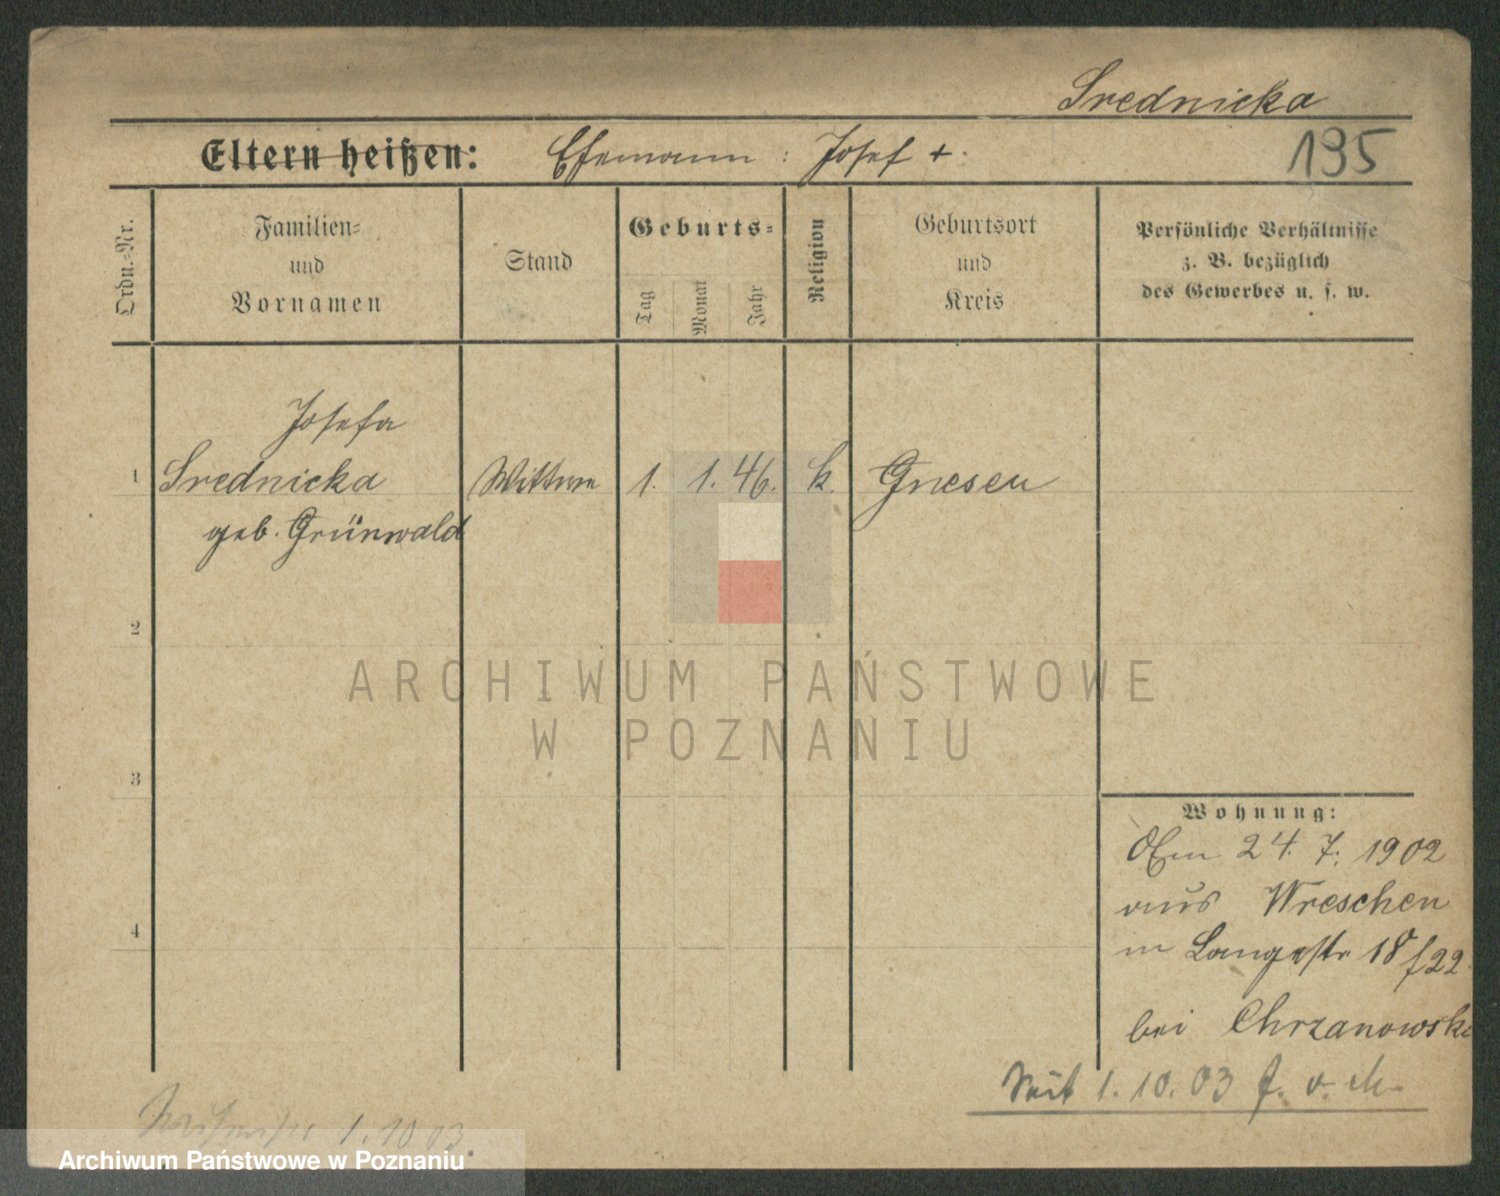 Srednicka
Eltern heißen: Ehemann: Josef +.
195
Ordn.-Nr.
Familien-
und
Vornamen
Stand
Geburts-
Tag
Monat
Jahr
Religion
Geburtsort
und
Kreis
Persönliche Verhältnisse
z. B. bezüglich
des Gewerbes u. s. w.
Josefa
1 Srednicka Wittwe 1. 1. 46. k. Gnesen
geb. Grünwald
2
ARCHIWUM PAŃSTWOWE
W POZNANIU
3
Wohnung:
Am 24. 7. 1902
aus Wreschen
in Langestr 18 / 22
bei Chrzanowski
4
Seit 1. 10. 03 f. v. M.
1. 10 03.
Archiwum Państwowe w Poznaniu